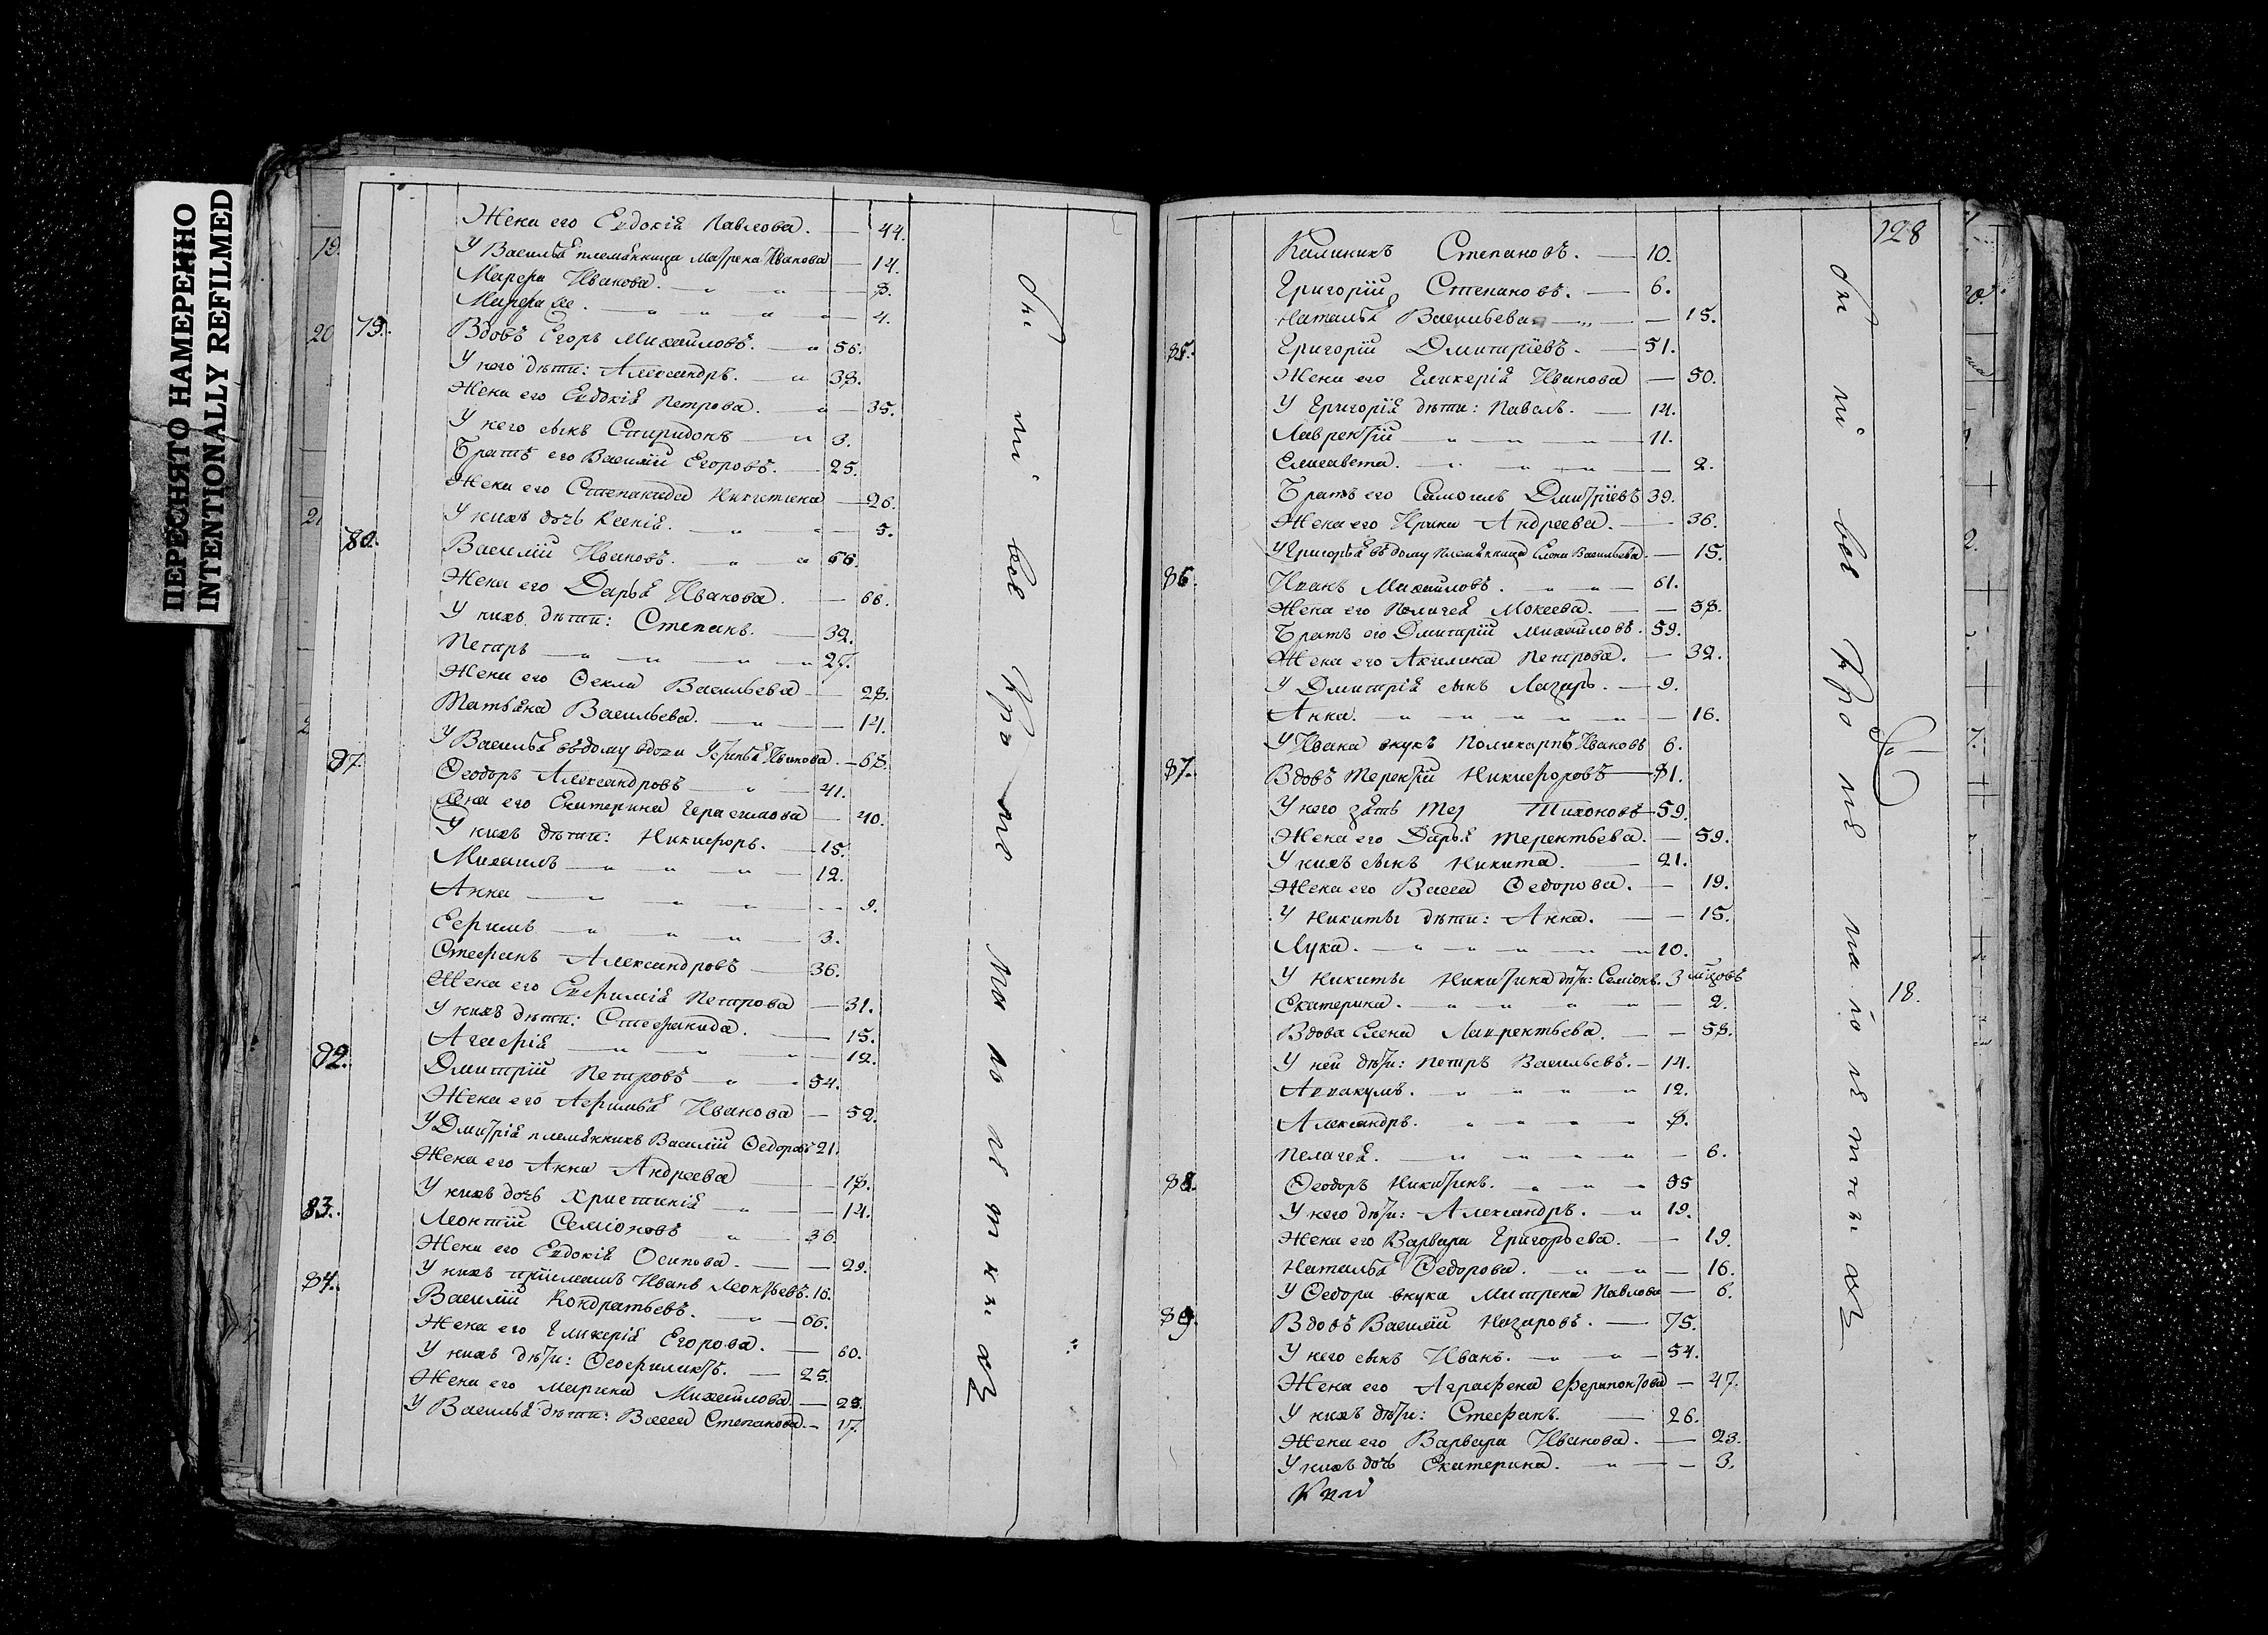 ПЕРЕСНЯТО НАМЕРЕННО
INTENTIONALLY REFILMED
Жена его Евдокія Павлова. — 44.
У Василья племянница Матрена Иванова — 14.
Марѳа Иванова. — 8.
4.
79. Вдовъ Егоръ Михайловъ. — 56.
У него дѣти: Александръ. — 38.
Жена его Евдокія Петрова. — 35.
У него сынъ Спиридонъ — 3.
Братъ его Василій Егоровъ. — 25.
Жена его Степанида Никитина — 26.
У нихъ дочь Ксенія. — 5.
80. Василій Ивановъ. — 66.
Жена его Дарья Иванова. — 66.
У нихъ дѣти: Степанъ. — 32.
Петръ — 27.
Жена его Ѳекла Васильева — 28.
Татьяна Васильева. — 14.
У Василья въ дому вдова Иванова. — 68.
Ѳеодоръ Александровъ — 41.
Жена его Екатерина Герасимова — 40.
У нихъ дѣти: Никифоръ. — 15.
Михаилъ — 12.
Анна — 9.
Ефимъ — 3.
Стефанъ Александровъ — 36.
Жена его Евфимія Петрова — 31.
У нихъ дѣти: Стефанида. — 15.
Агафія — 12.
82. Дмитрій Петровъ — 54.
Жена его Афимья Иванова — 52.
У Дмитрія племянникъ Василій Ѳедоровъ 21.
Жена его Анна Андреева — 18.
У нихъ дочь Христинія — 14.
83. Леонтій Семіоновъ — 36.
Жена его Евдокія Осипова. — 29.
У нихъ пріемышъ Иванъ Леонтьевъ. 16.
84. Василій Кондратьевъ. — 66.
Жена его Гликерія Егорова. — 60.
У нихъ дѣти: Ѳеофилактъ. — 25.
Жена его Марина Михайлова. — 28.
У Василья дѣти: Васса Степанова. — 17.
128
Калиникъ Степановъ. — 10.
Григорій Степановъ. — 6.
Наталья Васильева — 15.
85. Григорій Дмитріевъ. — 51.
Жена его Гликерія Иванова — 50.
У Григорія дѣти: Павелъ. — 14.
Лаврентій — 11.
Елисавета. — 2.
Братъ его Самоилъ Дмитріевъ 39.
Жена его Ирина Андреева. — 36.
У Григорья въ дому племянница Елена Васильева. — 15.
86. Иванъ Михайловъ. — 61.
Жена его Пелагея Мокеева. — 58.
Братъ его Дмитрій Михайловъ. 59.
Жена его Акилина Петрова. — 32.
У Дмитрія сынъ Лазарь. — 9.
Анна. — 16.
У Ивана внукъ Поликарпъ Ивановъ 6.
87. Вдовъ Терентій Никифоровъ — 81.
У него зять Тихоновъ — 59.
Жена его Дарья Терентьева. — 59.
У нихъ сынъ Никита. — 21.
Жена его Васса Ѳедорова. — 19.
У Никиты дѣти: Анна. — 15.
Лука. — 10.
У Никиты Никитина дѣти: Семіонъ. 3
Екатерина. — 2.
18.
Вдова Елена Лаврентьева. — 58.
У ней дѣти: Петръ Васильевъ. — 14.
Аввакумъ. — 12.
Александръ. — 8.
Пелагея. — 6.
88. Ѳеодоръ Никитинъ. — 35
У него дѣти: Александръ. — 19.
Жена его Варвара Григорьева. — 19.
Наталья Ѳедорова. — 16.
У Ѳедора внука Матрена Павлова — 6.
89. Вдовъ Василій Назаровъ. — 75.
У него сынъ Иванъ. — 54.
Жена его Аграфена Ферапонтова — 47.
У нихъ дѣти: Стефанъ. — 26.
Жена его Варвара Иванова. — 23.
У нихъ дочь Екатерина. — 3.